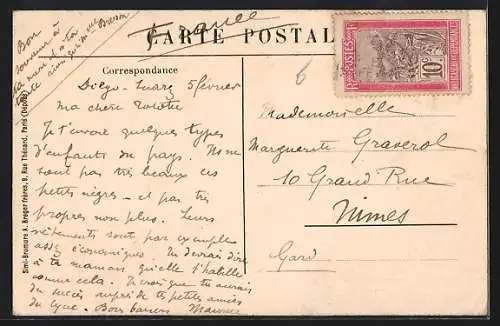 Bon
souvenir à
ta mère et à ta
tante
Bresson
France
CARTE POSTAL
Correspondance
Diego-Suarez 5 février
Ma chère
Je t'envoie quelques types
d'enfants du pays. Ils ne
sont pas très beaux ces
petits nègres — et pas très
propres non plus. Leurs
vêtements sont par exemple
assez économiques. Tu devrais dire
à ta maman qu'elle t'habille
comme cela. Je crois que tu aurais
du succès auprès de tes petites amies
du lycée. Bons baisers Maurice
6
POSTES
10
Mademoiselle
Marguerite Graverol
10 Grand Rue
Nimes
Gard
Simi-Bromure A. Breger frères, 9, Rue Thénard, Paris